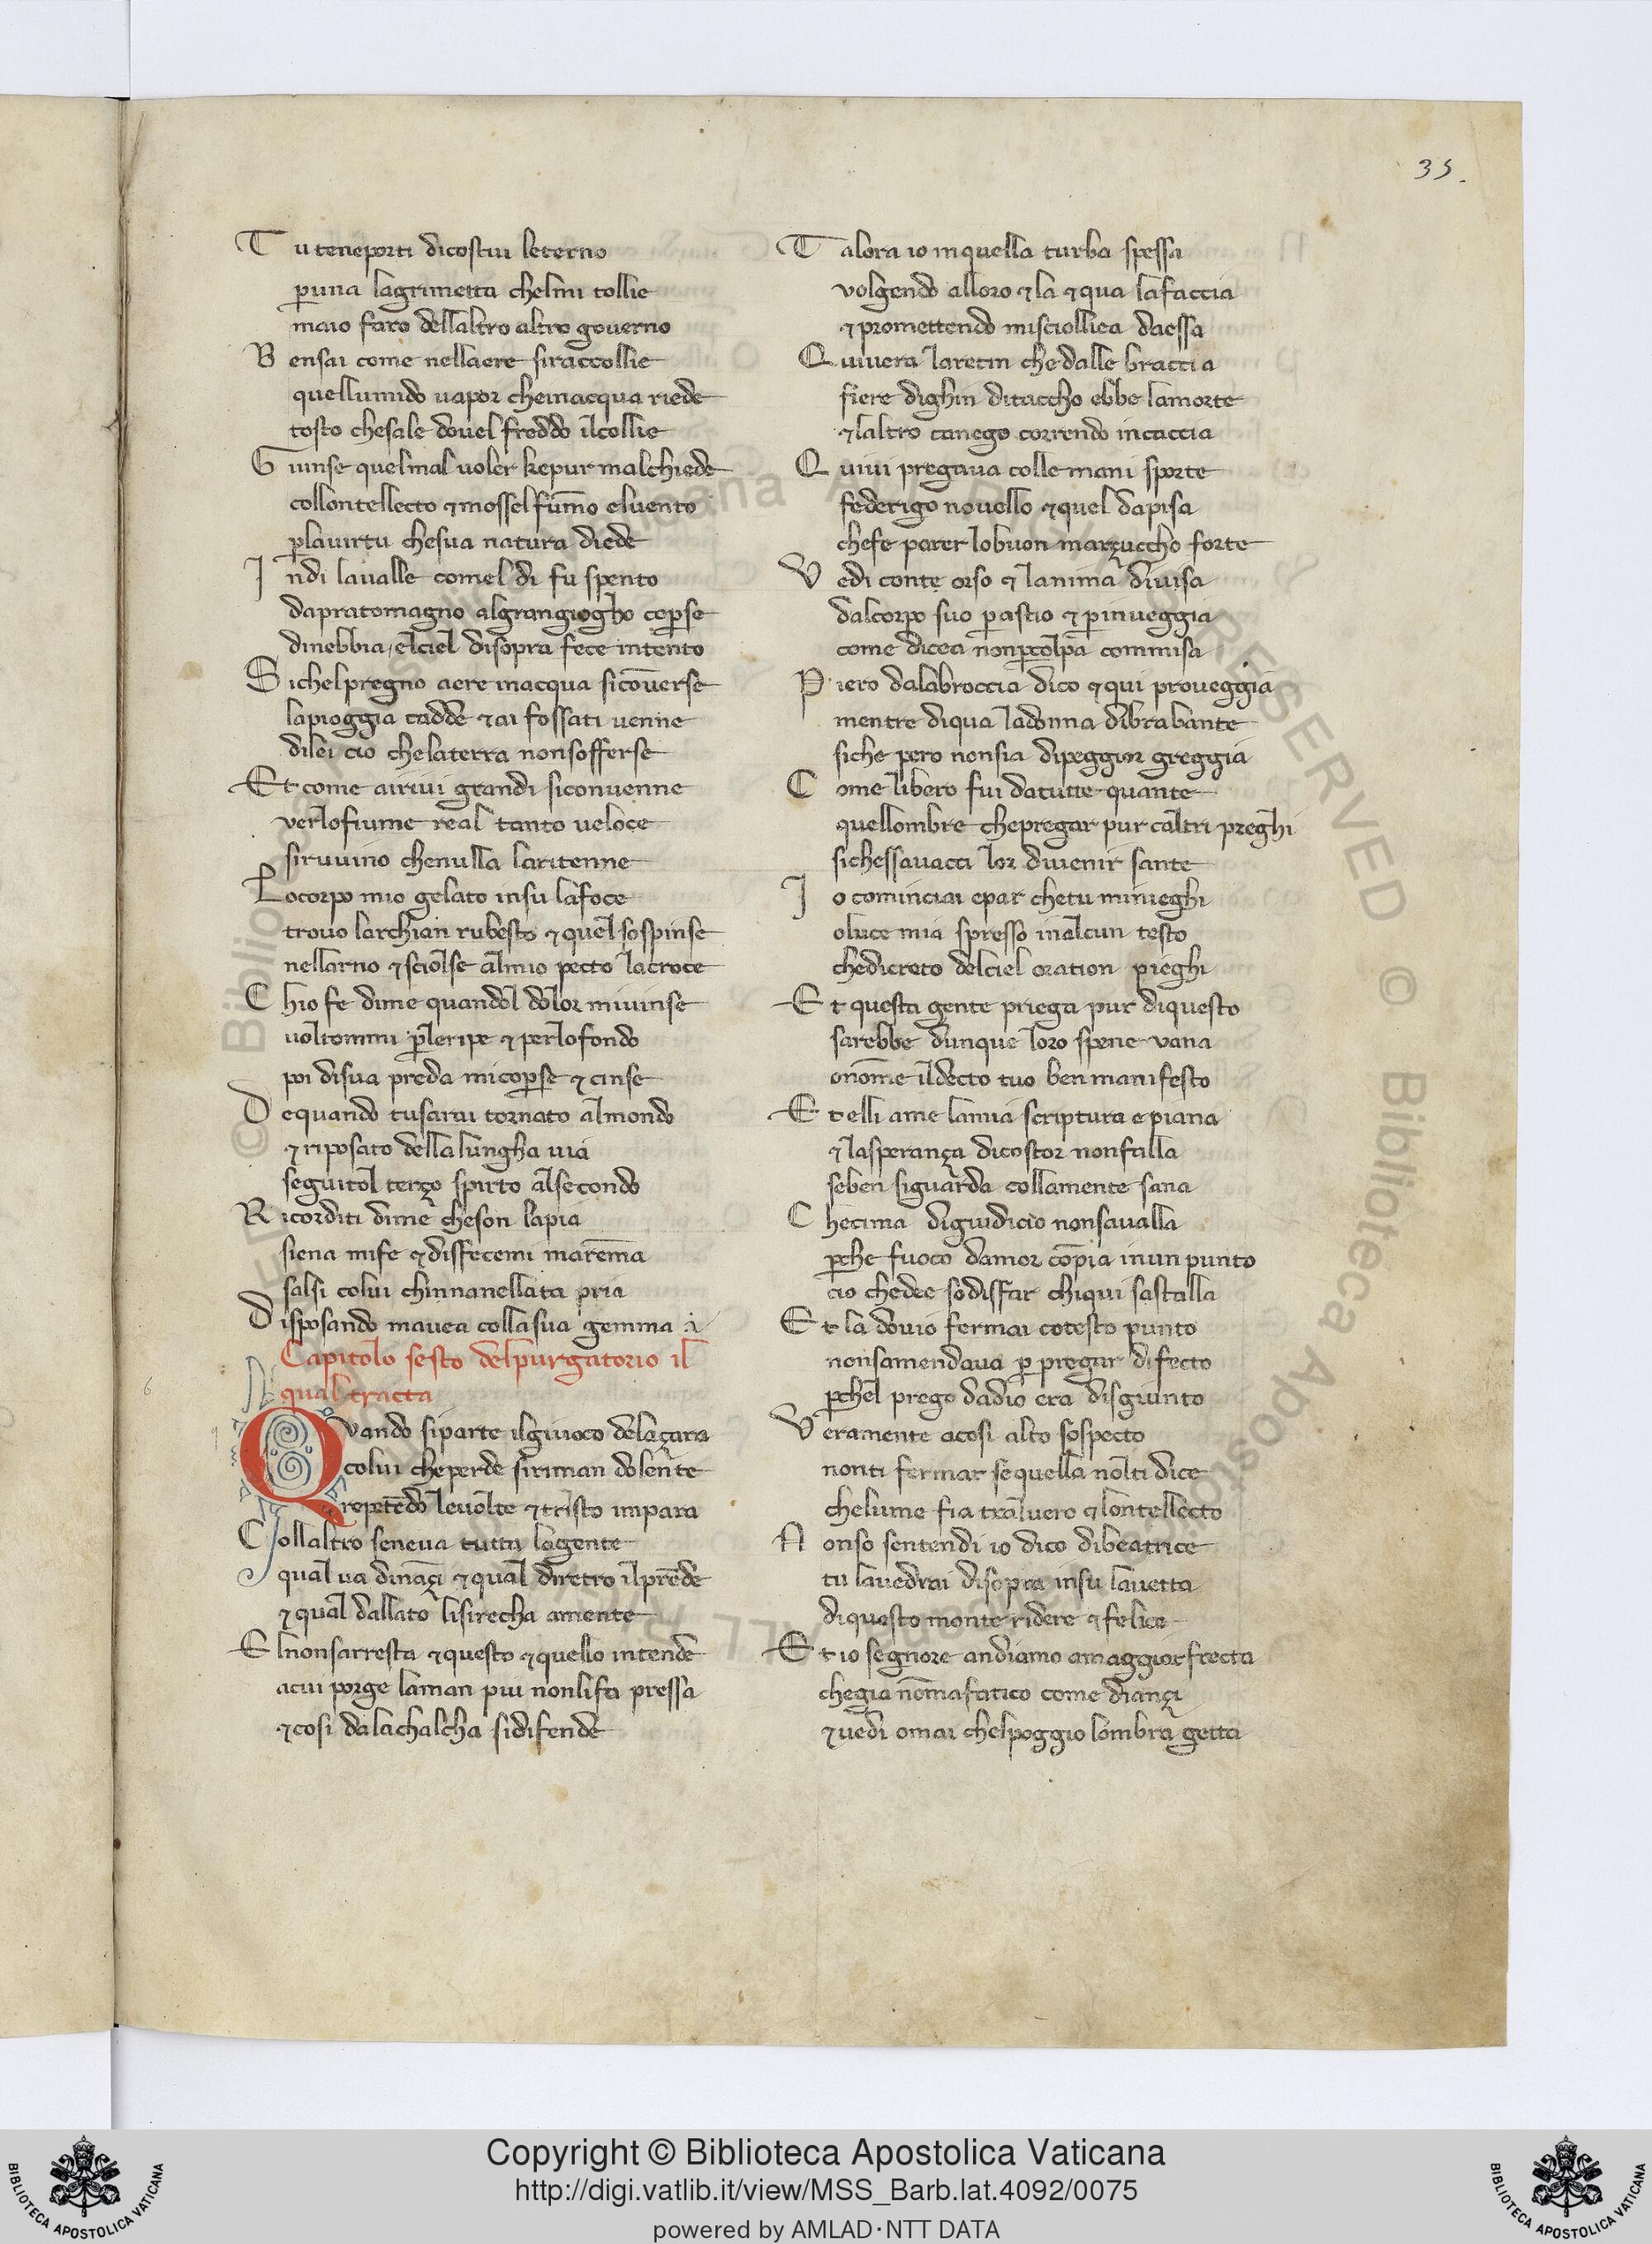 35.
Tu teneporti dicostui leterno
p̱una lagrimetta chelmi tollie
maio faro dellaltro altro gouerno
Bensai come nellaere siraccollie
quellumido uapor cheinacqua riede
tosto chesale douel freddo ilcollie
Giunse quelmal uoler kepur malchiede
collontellecto ⁊ mossel fum̄o eluento
p̱lauirtu chesua natura diede
Indi laualle comel di fu spento
dapratomagno algrangiogho cop̱se
dinebbia / elciel disopra fece intento
Sichelpregno aere inacqua sicōuerse
lapioggia cadde ⁊ ai fossati uenne
dilei cio chelaterra nonsofferse
Et come airiui grandi siconuenne
verlofiume real tanto ueloçe
siruuino chenulla laritenne
Locorpo mio gelato insu lafoce
trouo larchian rubesto ⁊ quel sospinse
nellarno ⁊ sciolse almio pecto lacroce
Chio fe dime quandol dolor miuinse
uoltommi p̱leripe ⁊ perlofondo
poi disua preda micop̱se ⁊ cinse
Dequando tusarai tornato almondo
⁊ riposato dellalungha uia
seguitol terço spirto alsecondo
Ricorditi dime cheson lapia
siena mife ⁊ disfecemi marem̄a
salsi colui chinnanellata pria
Disposando mauea collasua gemma
Capitolo sesto delpurgatorio il
qual tracta
Quando siparte ilgiuoco delaçara
colui cheperde siriman dolente
repetēdo leuolte ⁊ tristo impara
Collaltro seneua tutta lagente
qual ua dināçi ⁊ qual diretro ilprēde
⁊ qual dallato lisirecha amente
Elnonsarresta ⁊ questo ⁊ quello intende
acui porge laman piu nonlifa pressa
⁊ cosi dalachalcha sidifende
Talora io inquella turba spessa
volgendo alloro ⁊ la ⁊ qua lafaccia
⁊ promettendo misciolliea daessa
Quiuera laretin chedalle braccia
fiere dighin ditaccho ebbe lamorte
⁊ laltro canego correndo incaccia
Quiui pregaua colle mani sporte
federigo nouello ⁊ quel dapisa
chefe parer lobuon marçuccho forte
Vedi conte orso ⁊ lanima diuisa
dalcorpo suo p̱ astio ⁊ p̱ inueggia
come dicea nonp̱colpa commisa
Piero dalabroccia dico ⁊ qui proueggia
mentre diqua ladonna dibrabante
siche pero nonsia dipeggior greggia
Come libero fui datutte quante
quellombre chepregar pur caltri preghi
sichessauacci lor diuenir sante
Io cominciai epar chetu minieghi
oluce mia spresso inalcun testo
chedicreto delciel oration pieghi
Et questa gente priega pur diquesto
sarebbe dunque loro spene vana
onōme ildecto tuo ben manifesto
Et elli ame lamia scriptura e piana
⁊ lasperança dicostor nonfalla
seben siguarda collamente sana
Checima diguidicio nonsaualla
p̱che fuoco damor cōpia inun punto
cio chedee sodisfar chiqui sastalla
Et la douio fermai cotesto punto
nonsamendaua p̱ pregar difecto
p̱chel prego dadio era disgiunto
Veramente acosi alto sospecto
nonti fermar sequella nolti dice
chelume fia tral uero ⁊ lontellecto
Nonso sentendi io dico dibeatrice
tu lauedrai disopra insu lauetta
diquesto monte ridere ⁊ felice
Et io segnore andiamo amaggior frecta
chegia nōmafatico come diançi
⁊ uedi omai chelpoggio lombra getta
Copyright © Biblioteca Apostolica Vaticana
http://digi.vatlib.it/view/MSS_Barb.lat.4092/0075
powered by AMLAD·NTT DATA
BIBLIOTECA APOSTOLICA VATICANA
BIBLIOTECA APOSTOLICA VATICANA